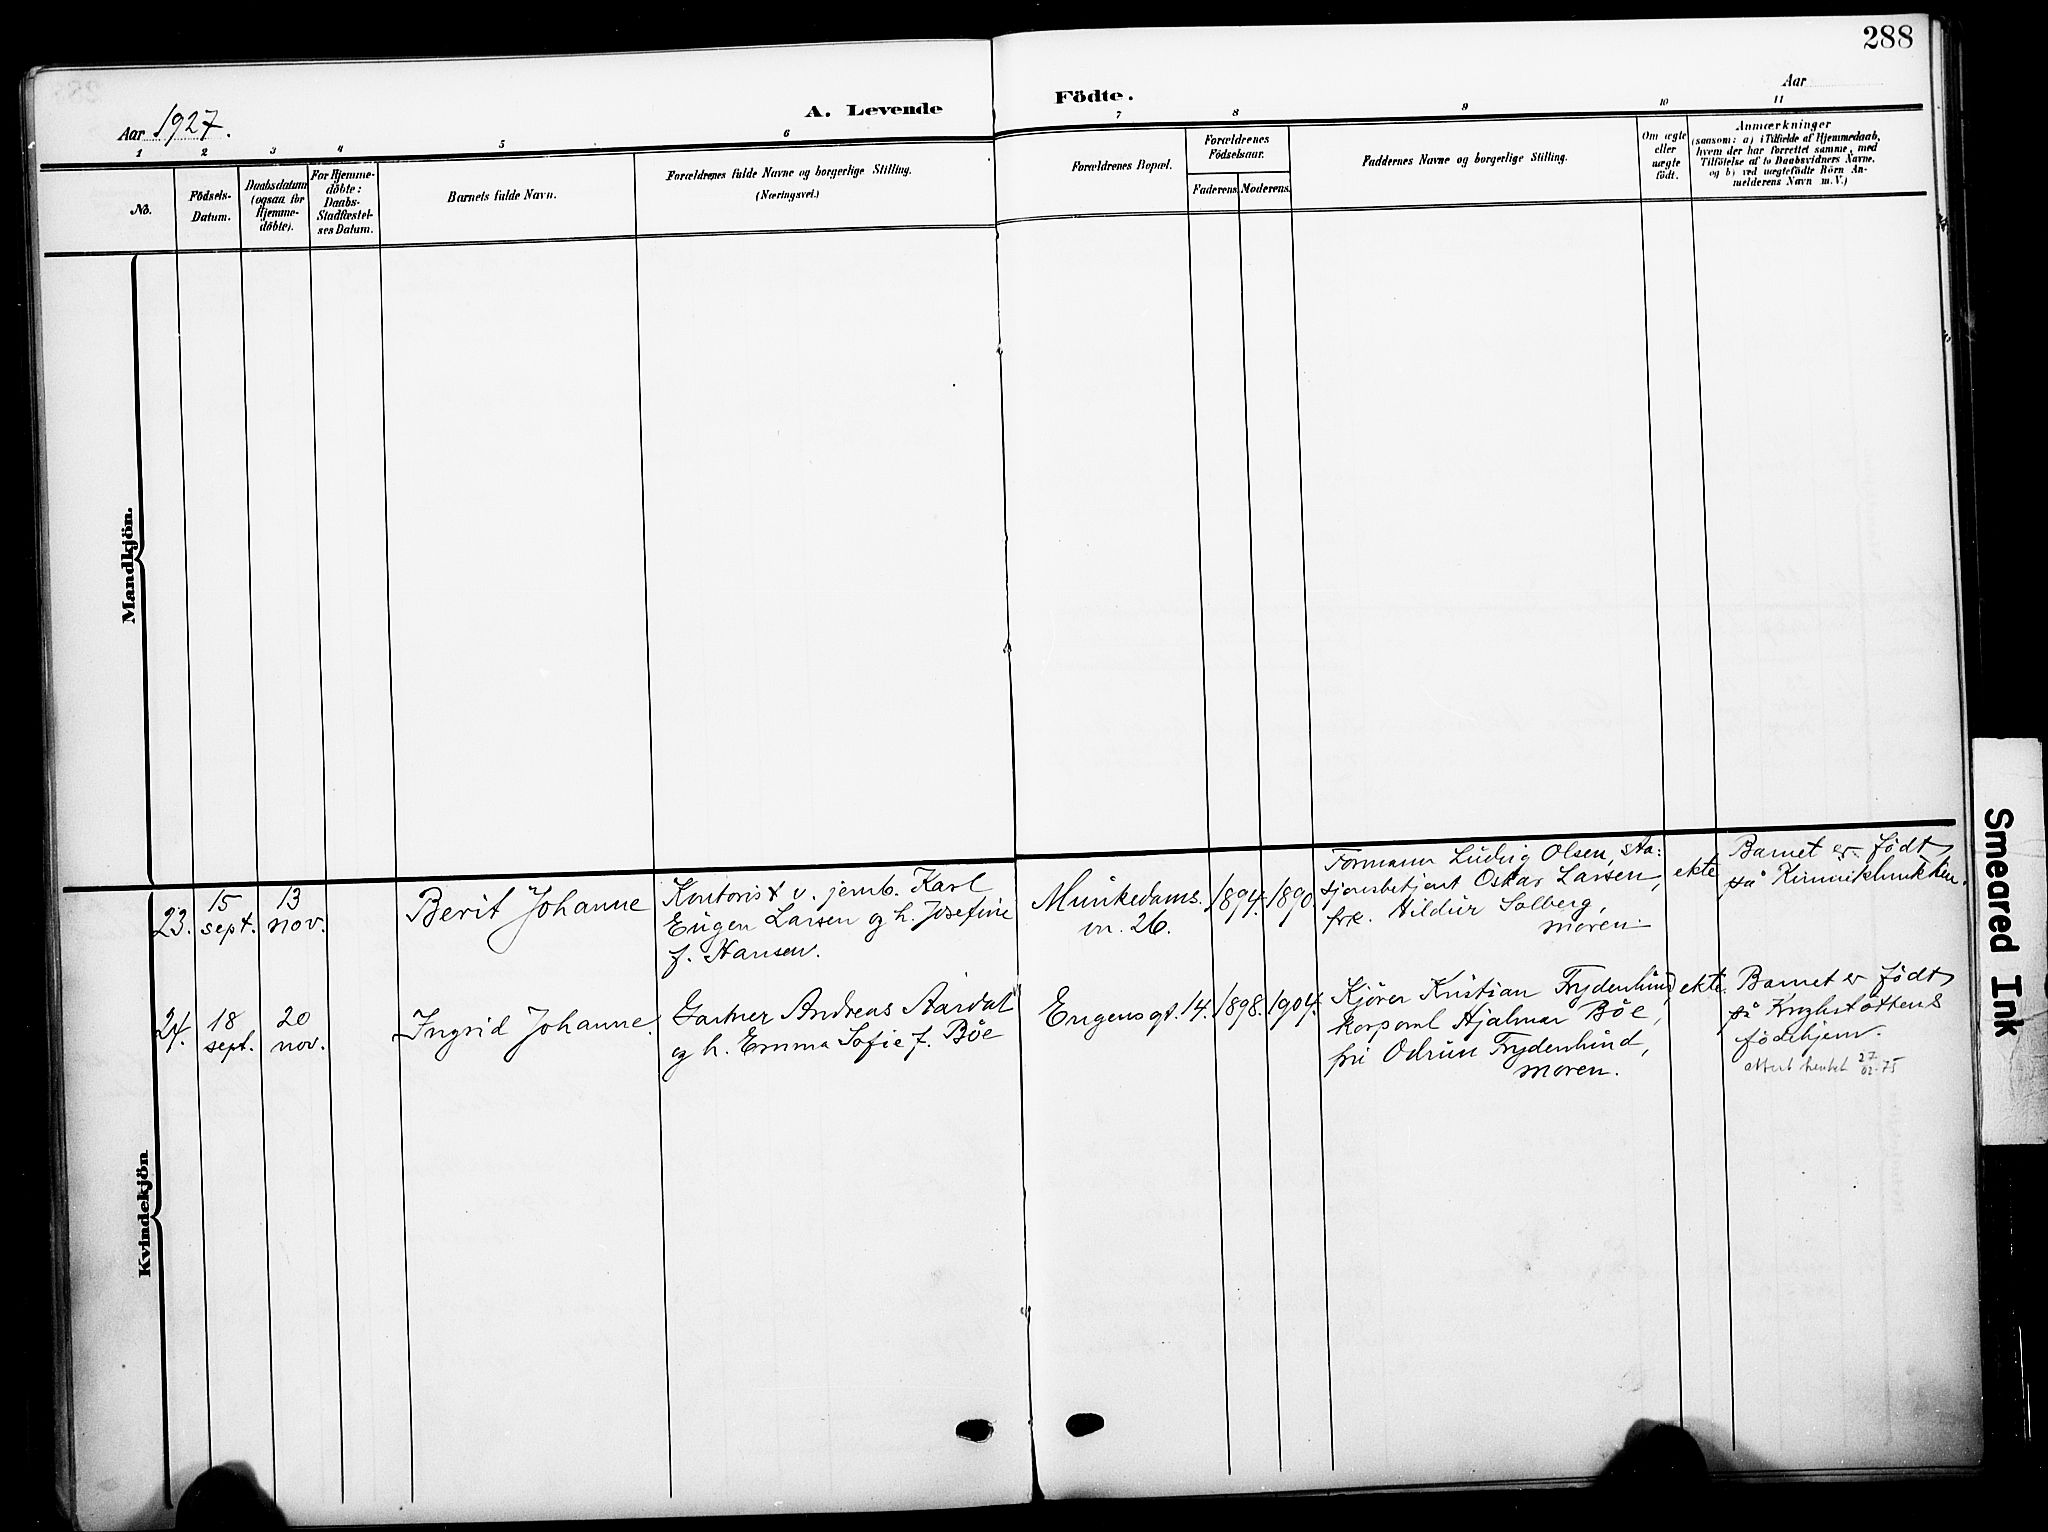 288
Aar 1927.
A. Levende Födte.
Aar
1 2 3 4 5 6 7 8 9 10 11
No.
Födsels-
Datum.
Daabsdatum
(ogsaa for
Hjemme-
döbte).
For Hjemme-
döbte:
Daabs-
Stadfæstel-
ses Datum.
Barnets fulde Navn.
Forældrenes fulde Navne og borgerlige Stilling.
(Næringsvei.)
Forældrenes Bopæl.
Forældrenes
Födselsaar.
Faderens. Moderens.
Faddernes Navne og borgerlige Stilling.
Om ægte
eller
uægte
födt.
Anmærkninger
(saasom: a) i Tilfælde af Hjemmedaab,
hvem der har forrettet samme, med
Tilföielse af to Daabsvidners Navne,
og b) ved uægtefödte Börn An-
melderens Navn m. V.)
Mandkjön.
Kvindekjön
23.
15
sept.
13
nov.
Berit Johanne
Kontorist v. jernb. Karl
Eugen Larsen og h. Josefine
f. Hansen.
Munkedams.
vn. 26.
1894.
1890
Formann Ludvig Olsen, sta:
sjonsbetjent Oskar Larsen,
frk. Hildur Solberg,
moren.
ekte
Barnet er født
på Kvinneklinikken.
24.
18
sept.
20
nov.
Ingrid Johanne.
Gartner Andreas Aardal
og h. Emma Sofie f. Böe
Eugensgt. 14.
1898.
1904.
Kjörer Kristian Frydenlund,
korporal Hjalmar Böe,
fru Odrun Frydenlund,
moren.
ekte.
Barnet er født
på
födehjem.
attest hentet 27/02-75
Smeared Ink